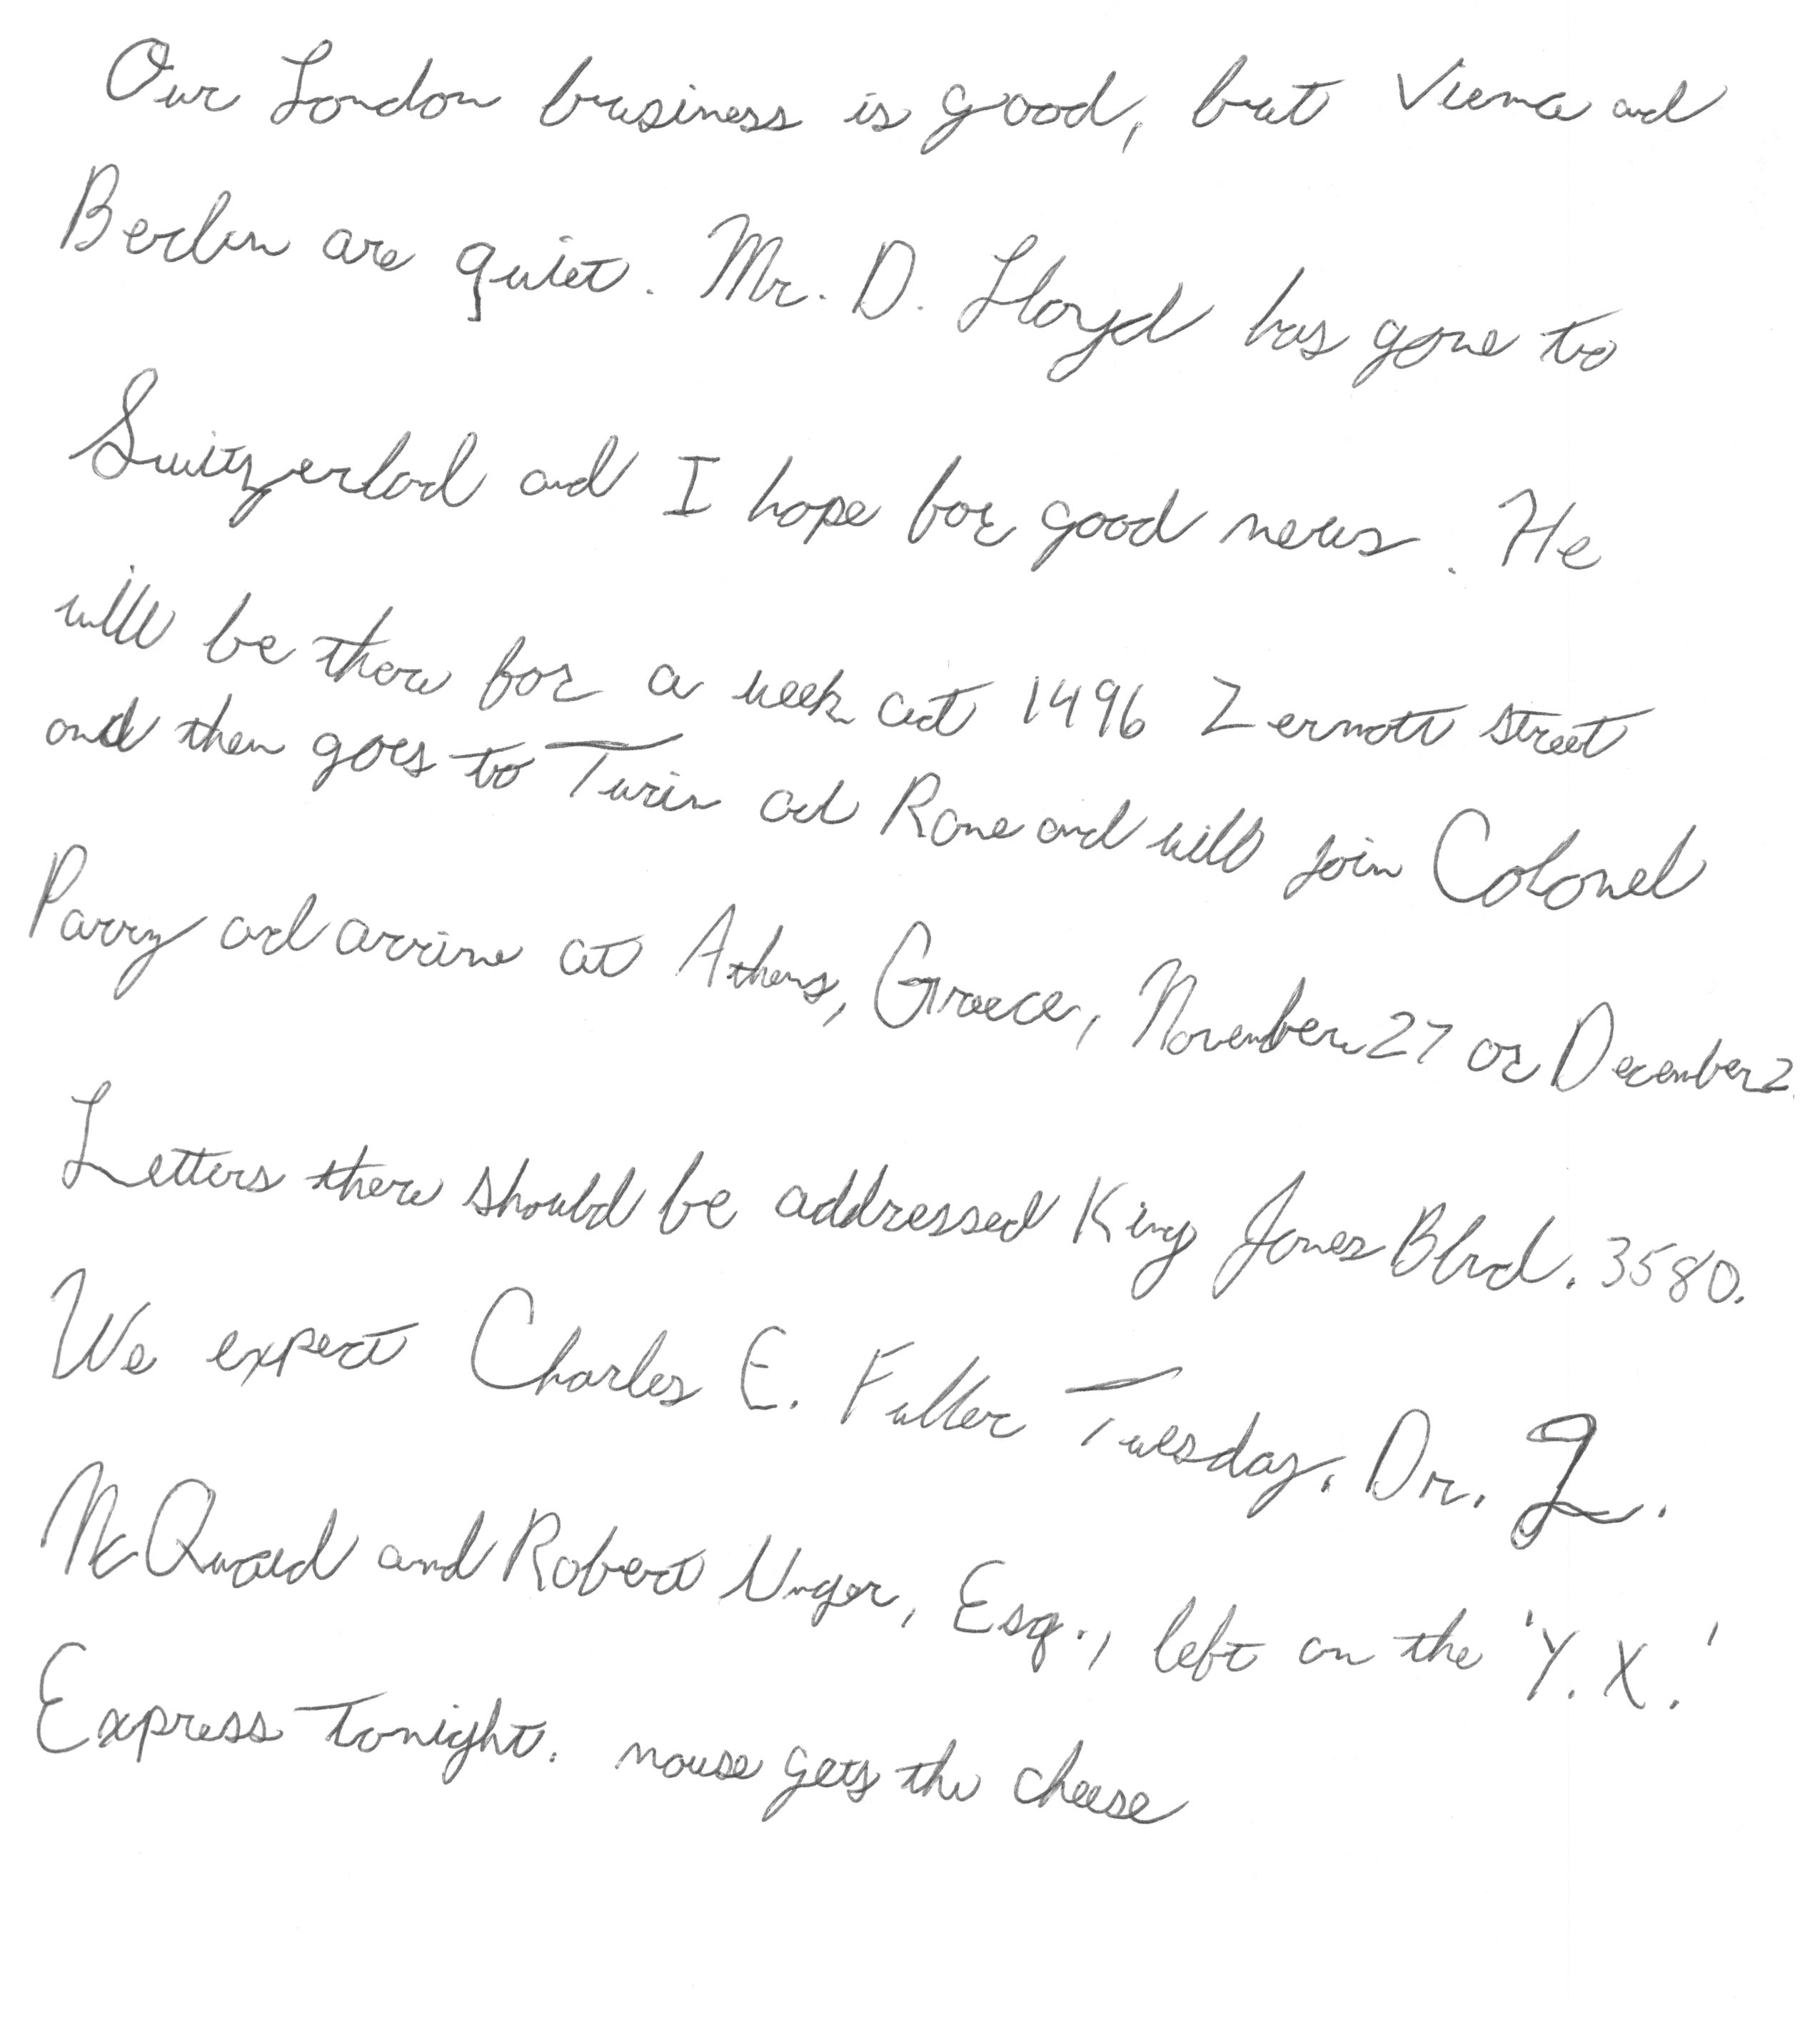 Our London business is good, but Vienna and
Berlin are quiet. Mr. D. Lloyd has gone to
Switzerland and I hope for good news. He
will be there for a week at 1496 Zermott street
and then goes to Turin and Rome and will join Colonel
Parry and arrive at Athens, Greece, November 27 or December 2.
Letters there should be addressed King James Blvd. 3580.
We expect Charles E. Fuller Tuesday. Dr. L.
McQuaid and Robert Unger, Esq., left on the 'Y.X.'
Express tonight. mouse gets the cheese